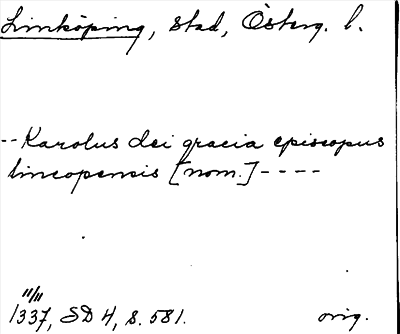 Linköping, stad, Österg. l.
-- Karolus dei gracia episcopus
lincopensis [nom.] ----
11/11
1337, SD 4, s. 581. orig.